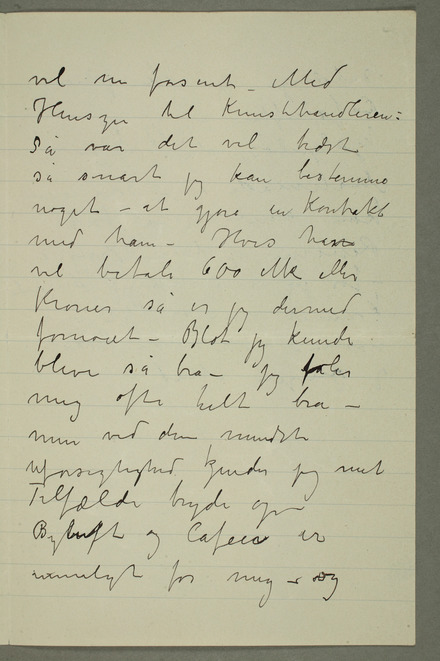 vel nu forsent – Med
Hensyn til Kunsthandleren:
Så var det vel bedst
så snart jeg kan bestemme
noget – at gjøre en Kontrakt
med ham – Hvis han
vil betale 600 Mk eller
Kroner så er jeg dermed
fornøiet – Blot jeg kunde
blive så bra – jeg føler
mig ofte helt bra –
men ved den mindste
uforsigtighed kjender jeg mit
Tilfælde bryde op –
Byluft og Cafeer er
umuligt for mig – og